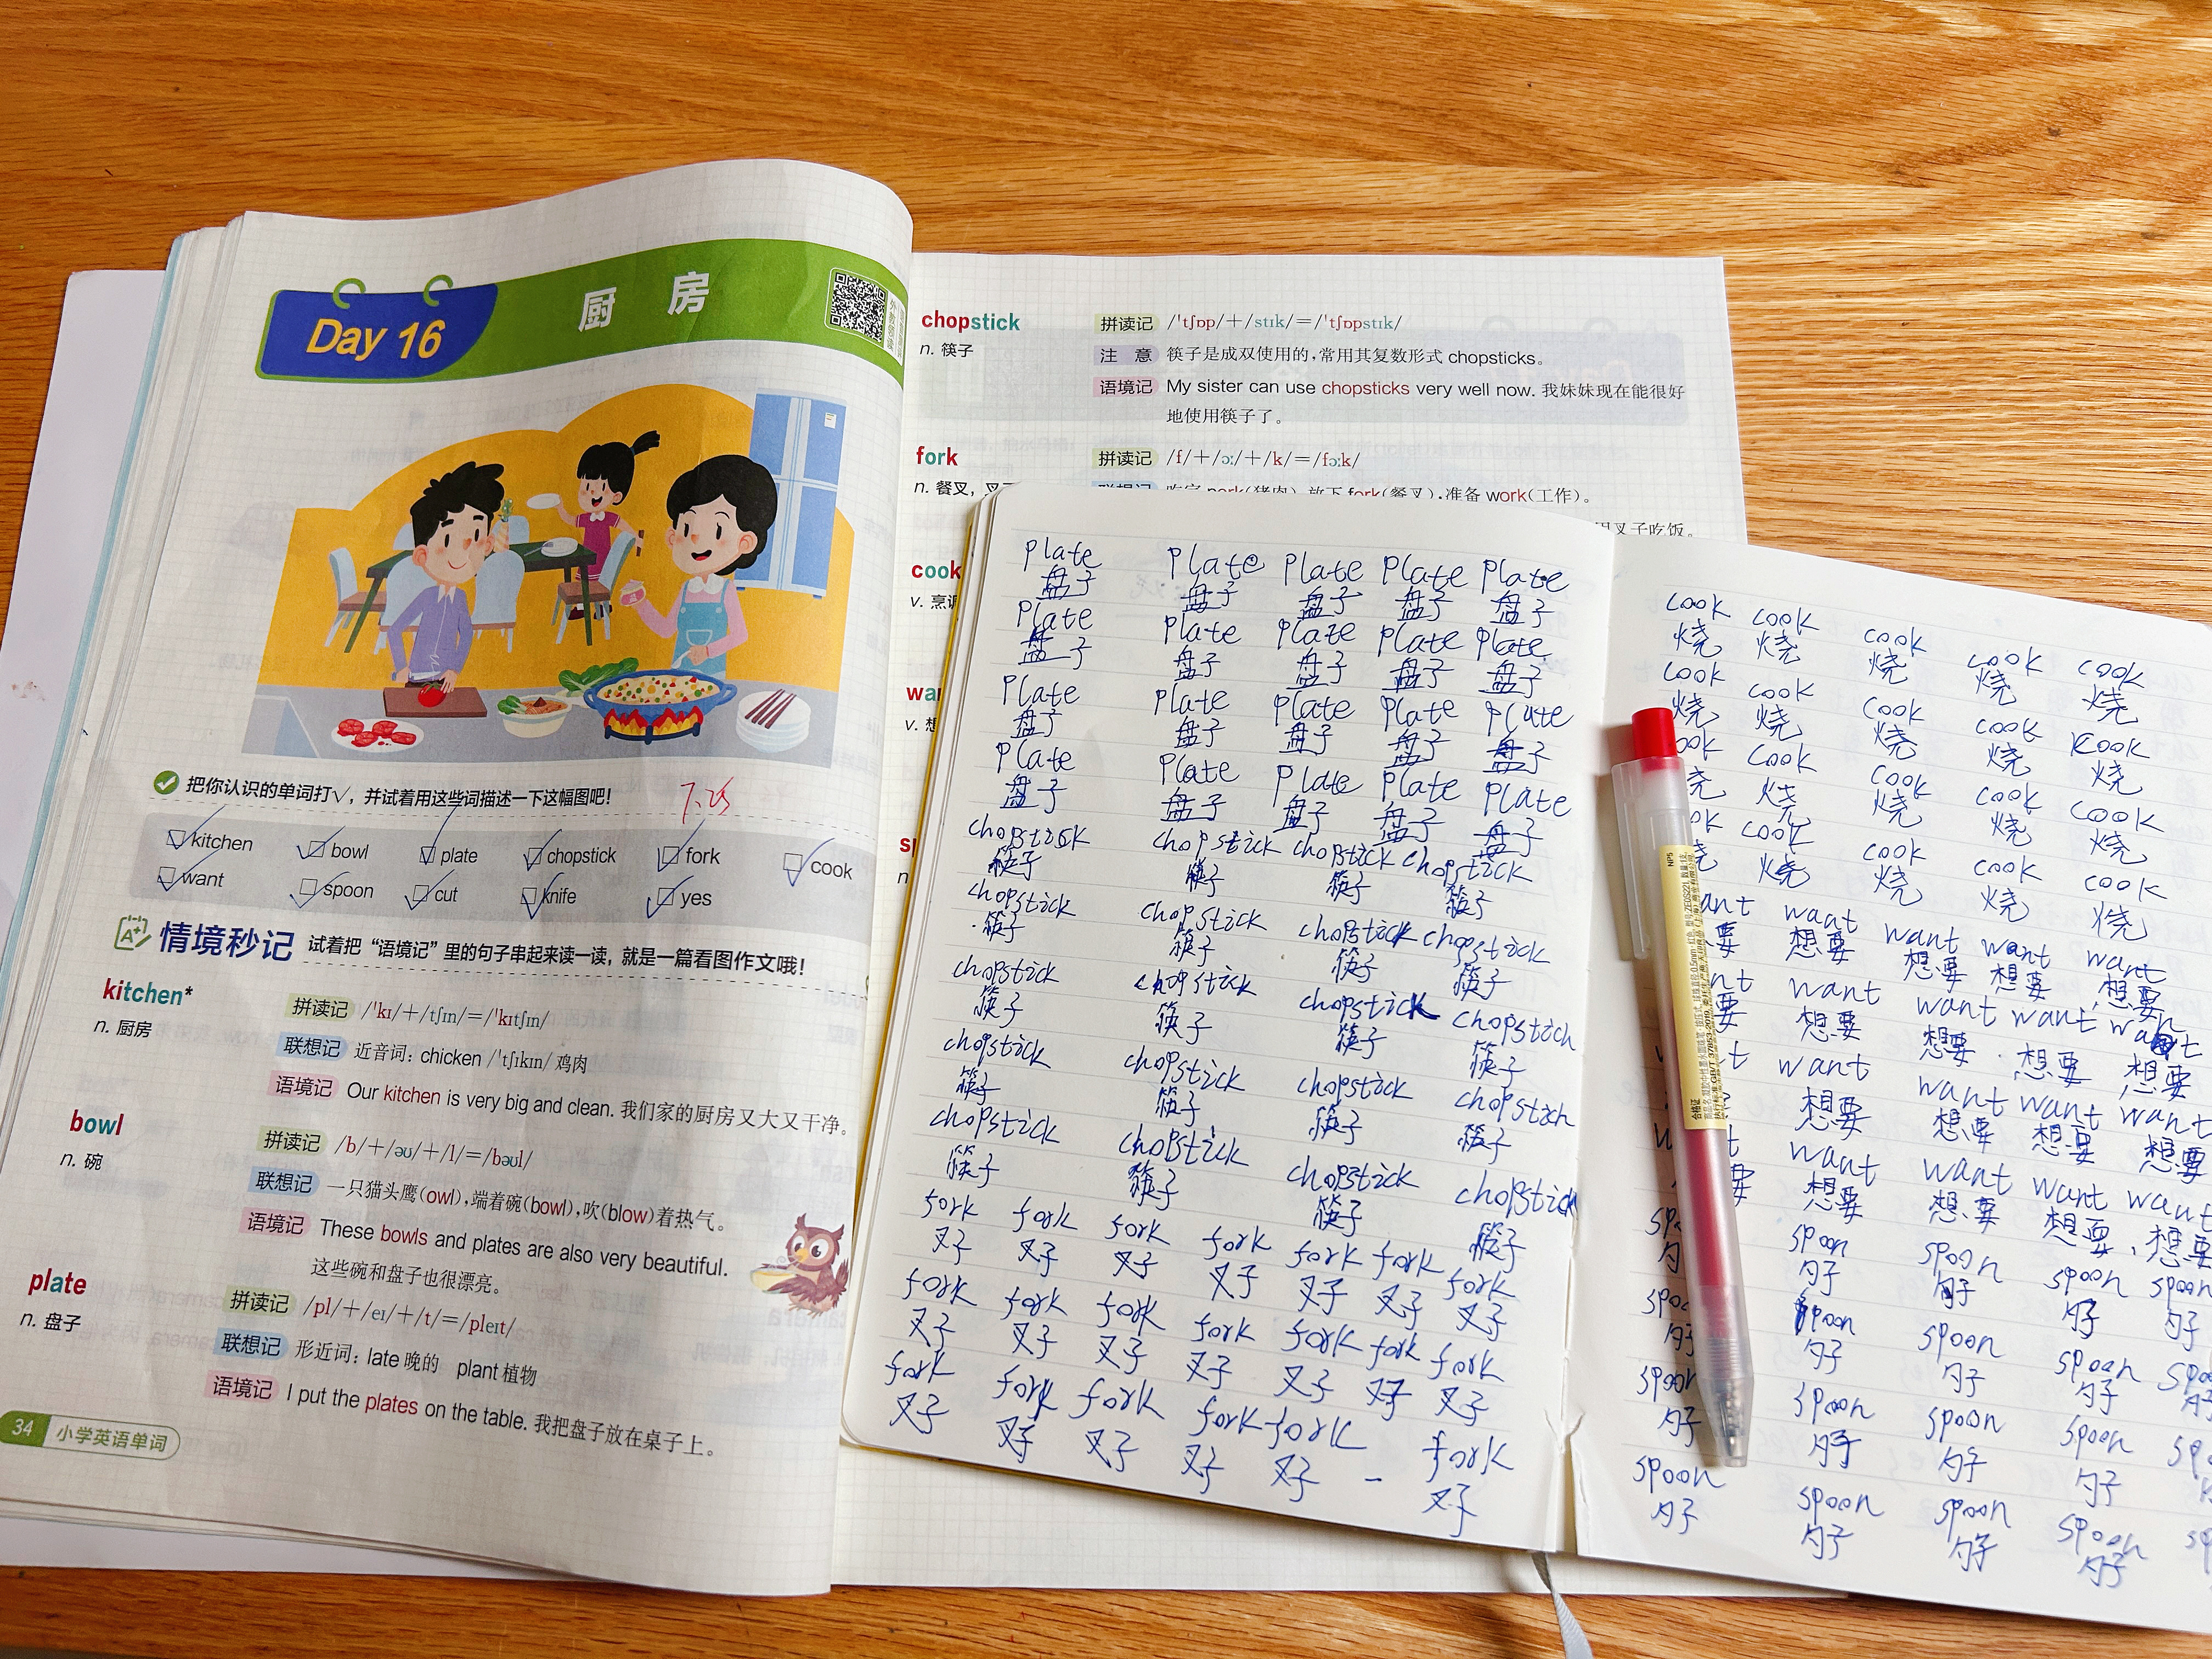 Day 16
厨 房
把你认识的单词打√，并试着用这些词描述一下这幅图吧！
7.25
kitchen bowl plate chopstick fork cook
want spoon cut knife yes
情境秒记 试着把“语境记”里的句子串起来读一读，就是一篇看图作文哦！
kitchen*
n. 厨房
拼读记 /ˈkɪ/＋/tʃɪn/＝/ˈkɪtʃɪn/
联想记 近音词：chicken /ˈtʃɪkɪn/ 鸡肉
语境记 Our kitchen is very big and clean. 我们家的厨房又大又干净。
bowl
n. 碗
拼读记 /b/＋/əʊ/＋/l/＝/bəʊl/
联想记 一只猫头鹰(owl)，端着碗(bowl)，吹(blow)着热气。
语境记 These bowls and plates are also very beautiful.
这些碗和盘子也很漂亮。
plate
n. 盘子
拼读记 /pl/＋/eɪ/＋/t/＝/pleɪt/
联想记 形近词：late 晚的 plant 植物
语境记 I put the plates on the table. 我把盘子放在桌子上。
34 小学英语单词
chopstick
n. 筷子
拼读记 /ˈtʃɒp/＋/stɪk/＝/ˈtʃɒpstɪk/
注 意 筷子是成双使用的，常用其复数形式 chopsticks。
语境记 My sister can use chopsticks very well now. 我妹妹现在能很好
地使用筷子了。
fork
n. 餐叉，叉
拼读记 /f/＋/ɔː/＋/k/＝/fɔːk/
联想记 吃完 pork(猪肉)，放下 fork(餐叉)，准备 work(工作)。
叉子吃饭。
cook
v. 烹
wa
v. 想
sp
n.
plate plate plate plate plate
盘子 盘子 盘子 盘子 盘子
plate plate plate plate plate
盘子 盘子 盘子 盘子 盘子
plate plate plate plate plate
盘子 盘子 盘子 盘子 盘子
plate plate plate plate plate
盘子 盘子 盘子 盘子 盘子
chopstick chopstick chopstick chopstick
筷子 筷子 筷子 筷子
chopstick chopstick chopstick chopstick
筷子 筷子 筷子 筷子
chopstick chopstick chopstick chopstich
筷子 筷子 筷子 筷子
chopstick chopstick chopstick chopstich
筷子 筷子 筷子 筷子
chopstick chopstick chopstick chopstick
筷子 筷子 筷子 筷子
fork fork fork fork fork fork fork
叉子 叉子 叉子 叉子 叉子 叉子 叉子
fork fork fork fork fork fork fork
叉子 叉子 叉子 叉子 叉子 叉子 叉子
fork fork fork fork fork fork
叉子 叉子 叉子 叉子 叉子 叉子
cook cook cook cook cook
烧 烧 烧 烧 烧
cook cook cook cook cook
烧 烧 烧 烧 烧
ook cook cook cook cook
烧 烧 烧 烧
ok cook cook cook cook
烧 烧 烧 烧
ant want want want want
要 想要 想要 想要 想要
nt want want want want
要 想要 想要 想要 想要
t want want want want
想要 想要 想要 想要
want want want want
要 想要 想要 想要 想要
sp spoon spoon spoon spoon
勺 勺子 勺子 勺子 勺子
spoo spoon spoon spoon spoo
勺子 勺子 勺子 勺子
spoon spoon spoon spoon sp
勺子 勺子 勺子 勺子
spoon spoon spoon spoon sp
勺子 勺子 勺子 勺子
NP5
合格证